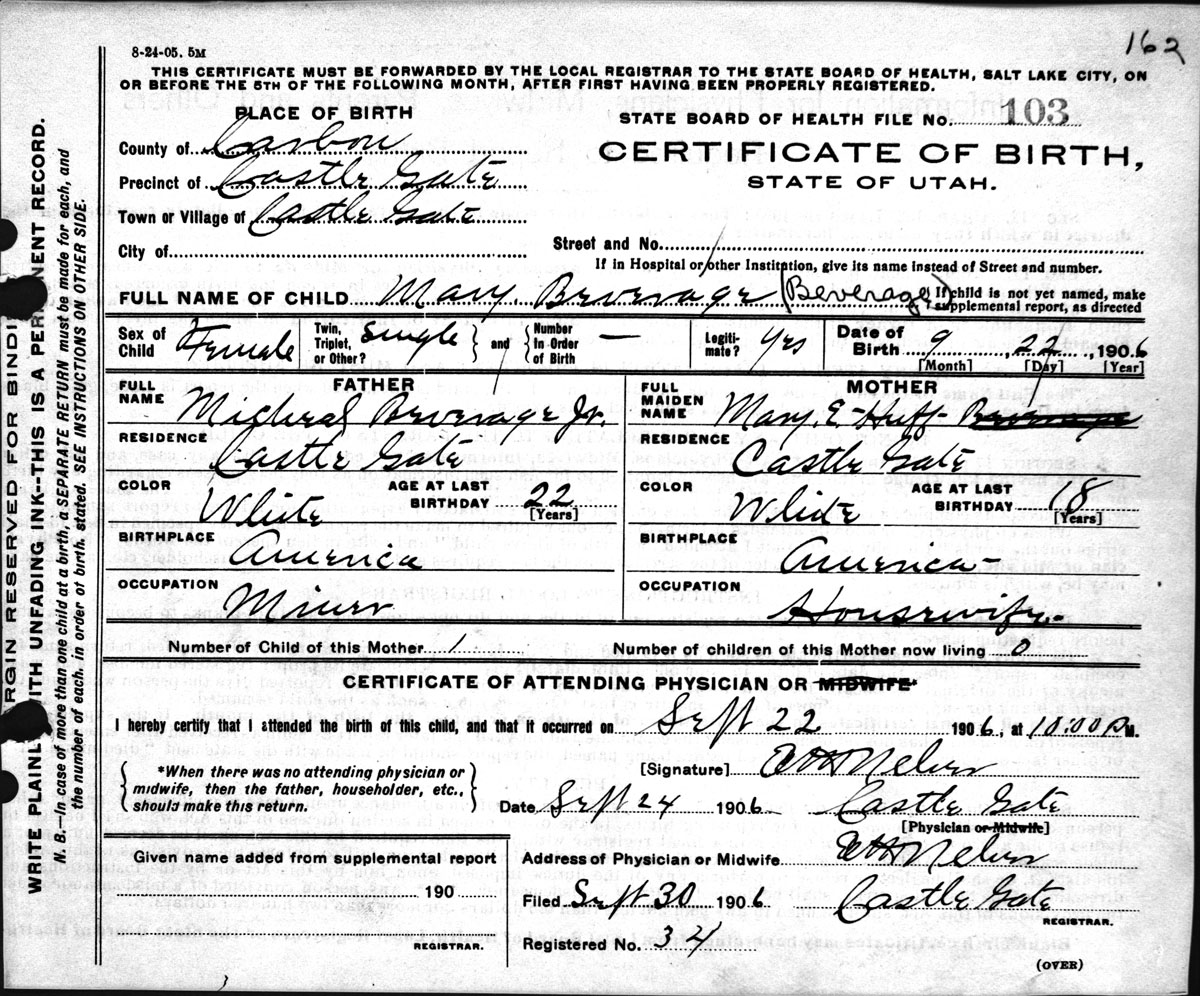 162
8-24-05. 5M
THIS CERTIFICATE MUST BE FORWARDED BY THE LOCAL REGISTRAR TO THE STATE BOARD OF HEALTH, SALT LAKE CITY, ON
OR BEFORE THE 5TH OF THE FOLLOWING MONTH, AFTER FIRST HAVING BEEN PROPERLY REGISTERED.
PLACE OF BIRTH
STATE BOARD OF HEALTH FILE No. 103
County of Carbon
CERTIFICATE OF BIRTH,
Precinct of Castle Gate
STATE OF UTAH.
Town or Village of Castle Gate
City of
Street and No.
If in Hospital or other Institution, give its name instead of Street and number.
FULL NAME OF CHILD Mary. Beverage (Beverage) { If child is not yet named, make supplemental report, as directed
Sex of Child Female Twin, Triplet, or Other? Single } and { Number In Order of Birth — Legiti-mate? Yes Date of Birth 9, 22, 1906
[Month] [Day] [Year]
FATHER
MOTHER
FULL NAME Micheal Beverage Jr.
FULL MAIDEN NAME Mary. E - Huff - Beverage
RESIDENCE Castle Gate
RESIDENCE Castle Gate
COLOR White AGE AT LAST BIRTHDAY 22 [Years]
COLOR White AGE AT LAST BIRTHDAY 18 [Years]
BIRTHPLACE America
BIRTHPLACE America
OCCUPATION Miner
OCCUPATION Housewife
Number of Child of this Mother 1
Number of children of this Mother now living 0
CERTIFICATE OF ATTENDING PHYSICIAN OR MIDWIFE*
I hereby certify that I attended the birth of this child, and that it occurred on Sept 22 1906, at 10:00 P M.
{ *When there was no attending physician or midwife, then the father, householder, etc., should make this return. }
[Signature]
Date Sept 24 1906 Castle Gate
[Physician or Midwife]
Given name added from supplemental report
190
REGISTRAR.
Address of Physician or Midwife
Filed Sept 30 1906 Castle Gate
REGISTRAR.
Registered No. 34
(OVER)
RGIN RESERVED FOR BINDI
WRITE PLAINL ITH UNFADING INK--THIS IS A PER NENT RECORD.
N. B.—In case of more than one child at a birth, a SEPARATE RETURN must be made for each, and
the number of each, in order of birth, stated. SEE INSTRUCTIONS ON OTHER SIDE.